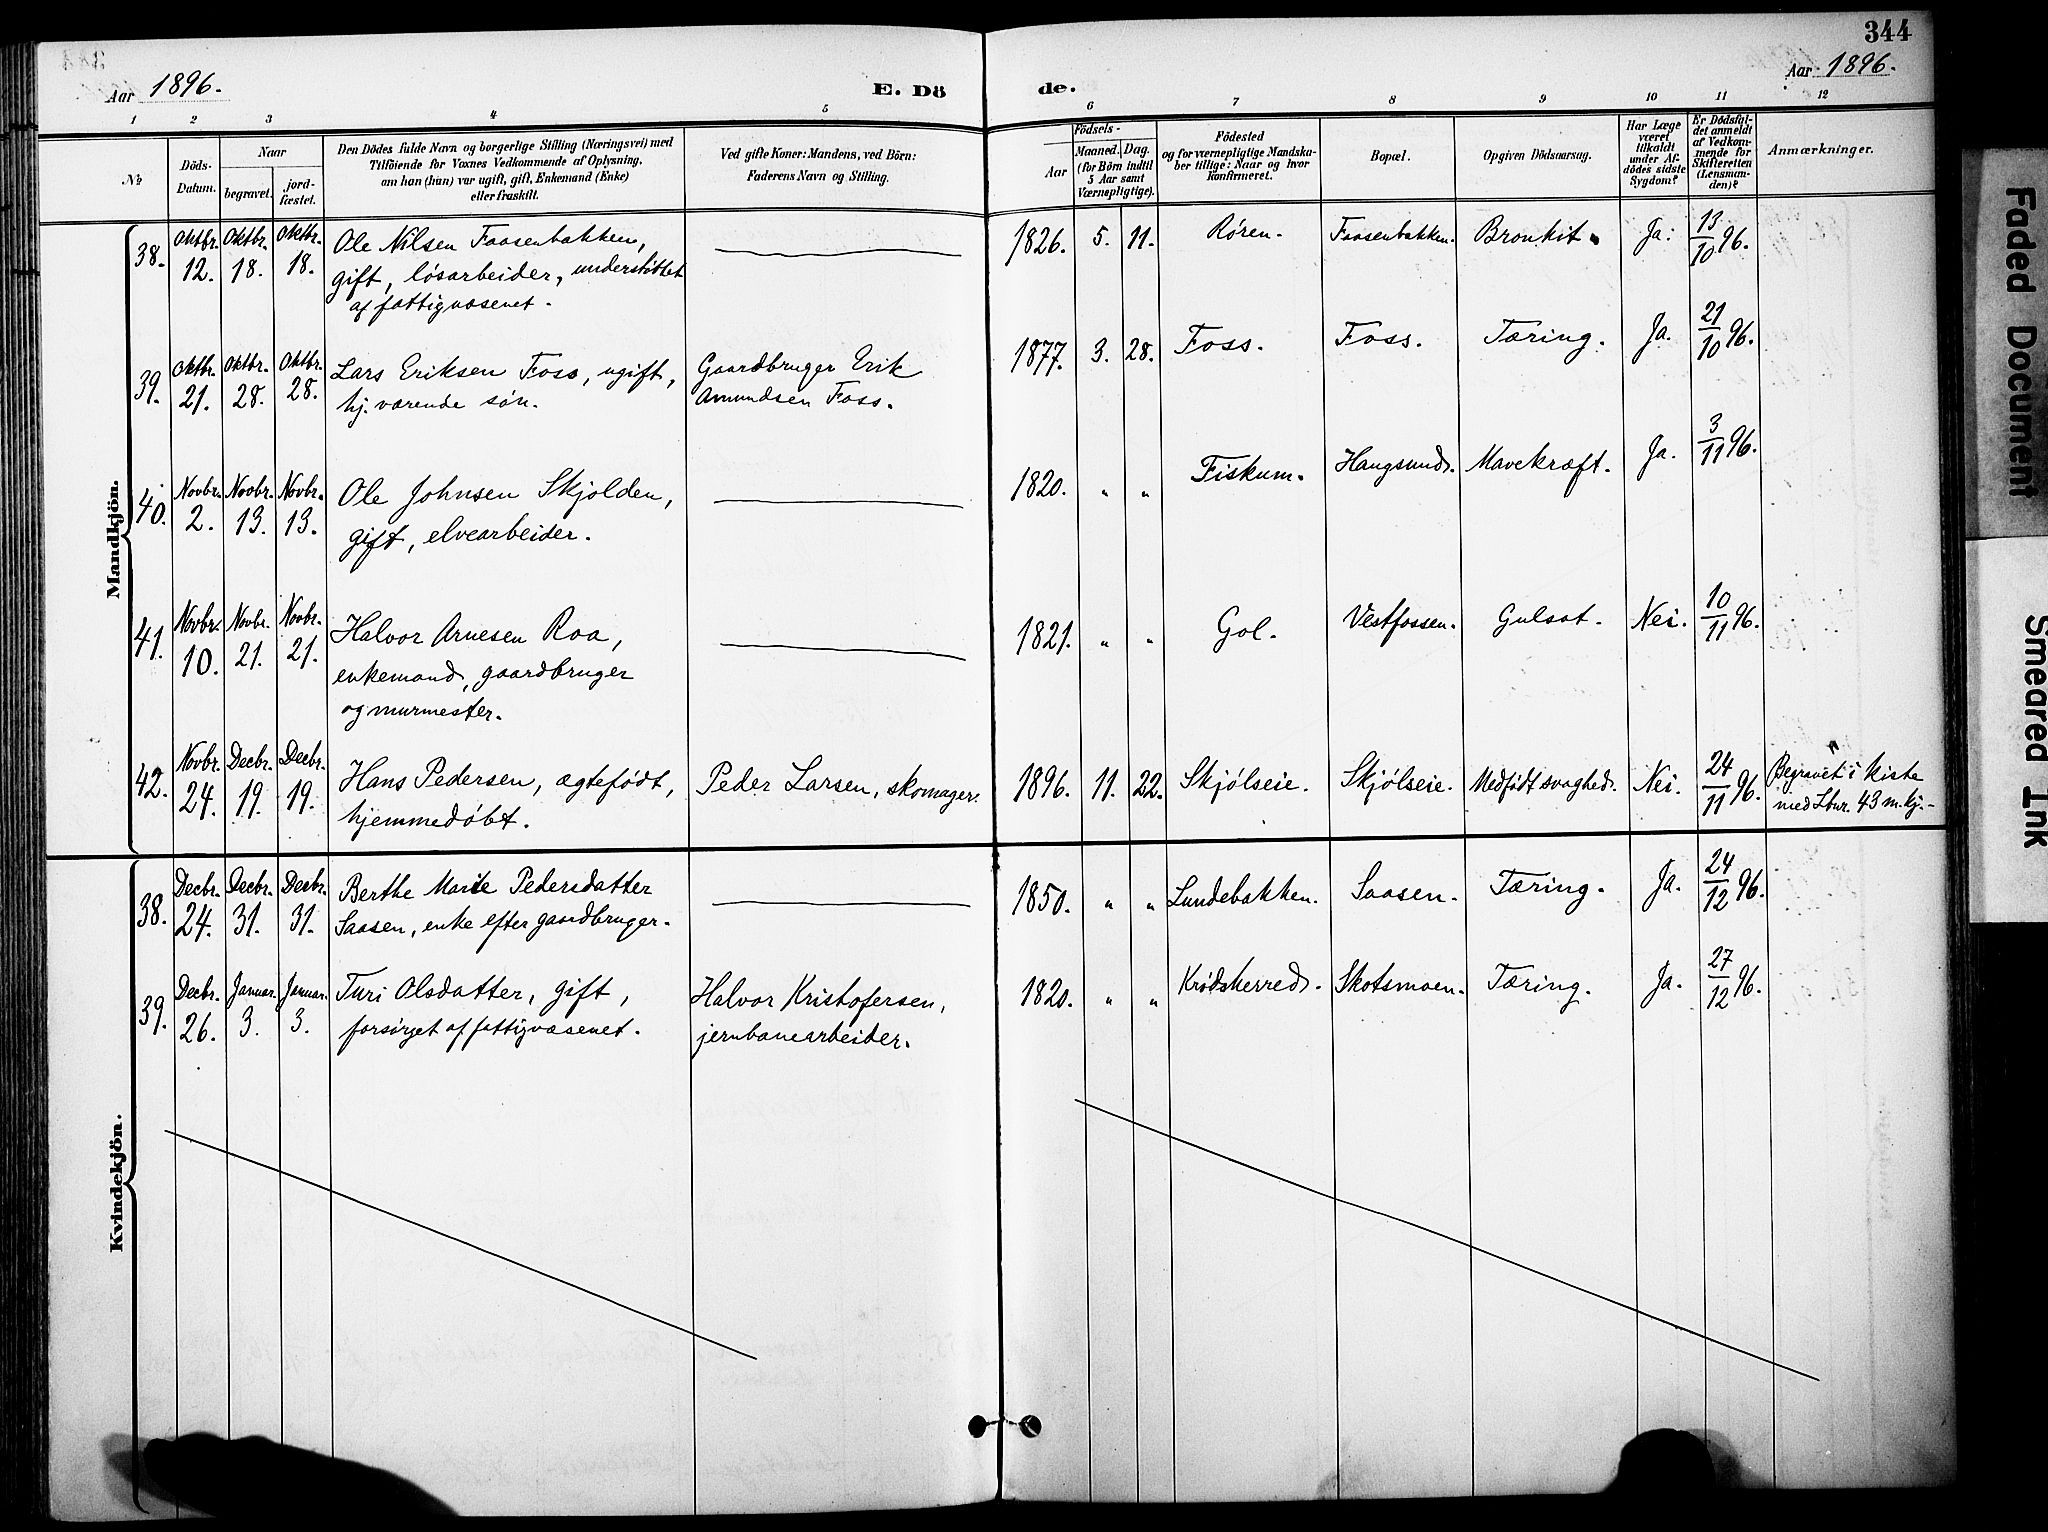 344
Aar 1896. E. Dö de. Aar 1896.
1 2 3 4 5 6 7 8 9 10 11 12
№
Döds-Datum.
Naar
begravet.
jord-fæstet.
Den Dödes fulde Navn og borgerlige Stilling (Næringsvei) med
Tilföiende for Voxnes Vedkommende af Oplysning,
om han (hun) var ugift, gift, Enkemand (Enke)
eller fraskilt.
Ved gifte Koner: Mandens, ved Börn:
Faderens Navn og Stilling.
Födsels-
Aar
Maaned. Dag.
(for Börn indtil
5 Aar samt
Værnepligtige).
Födested
og for værnepligtige Mandska-
ber tillige: Naar og hvor
Konfirmeret.
Bopæl.
Opgiven Dödsaarsag.
Har Læge
været
tilkaldt
under Af-
dödes sidste
Sygdom?
Er Dödsfal-
det anmeldt
af Vedkom-
mende for
Skifteretten
(Lensman-
den)?
Anmærkninger.
Mandkjön.
38. Oktbr. 12. Oktbr. 18. Oktbr. 18. Ole Nilsen Faasenbakken, 1826. 5. 11. Røren. Faasenbakken. Bronkit. Ja. 13/10 96.
gift, løsarbeider, understøttet
af fattigvæsenet.
39. Oktbr. 21. Oktbr. 28. Oktbr. 28. Lars Eriksen Foss, ugift, Gaardbruger Erik 1877. 3. 28. Foss. Foss. Tæring. Ja. 21/10 96.
hj. værende søn. Amundsen Foss.
40. Novbr. 2. Novbr. 13. Novbr. 13. Ole Johnsen Skjolden, 1820. " " Fiskum. Haugsund. Mavekræft. Ja. 3/11 96.
gift, elvearbeider.
41. Novbr. 10. Novbr. 21. Novbr. 21. Halvor Arnesen Roa, 1821. " " Gol. Vestfossen. Gulsot. Nei. 10/11 96.
enkemand, gaardbruger
og murmester.
42. Novbr. 24. Decbr. 19. Decbr. 19. Hans Pedersen, ægtefødt, Peder Larsen, skomager. 1896. 11. 22. Skjølseie. Skjølseie. Medfødt svaghed. Nei. 24/11 96. Begravet i kiste
hjemmedøbt. med Lbnr. 43 m.kj.-
Kvindekjön.
38. Decbr. 24. Decbr. 31. Decbr. 31. Berthe Marie Pedersdatter 1850. " " Lundebakken. Saasen. Tæring. Ja. 24/12 96.
Saasen, enke efter gaardbruger.
39. Decbr. 26. Januar. 3. Januar. 3. Turi Olsdatter, gift, Halvor Kristofersen, 1820. " " Krødsherred. Skotsmoen. Tæring. Ja. 27/12 96.
forsørget af fattigvæsenet. jernbanearbeider.
Faded Document
Smeared Ink